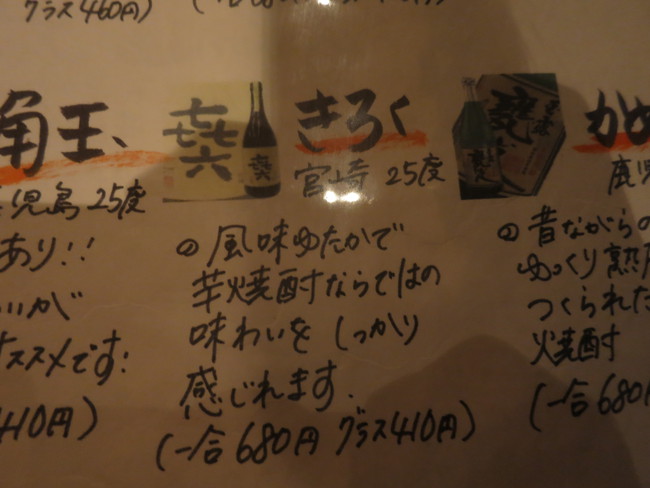 グラス460円)
角玉、
児島 25度
あり!!
いいが
ススメです!
410円)
㐂六
きろく
宮崎 25度
の風味ゆたかで
芋焼酎ならではの
味わいをしっかり
感じれます.
(一合680円 グラス410円)
かめ
鹿児
の昔ながらの
ゆっくり熟
つくられた
焼酎
(一合680